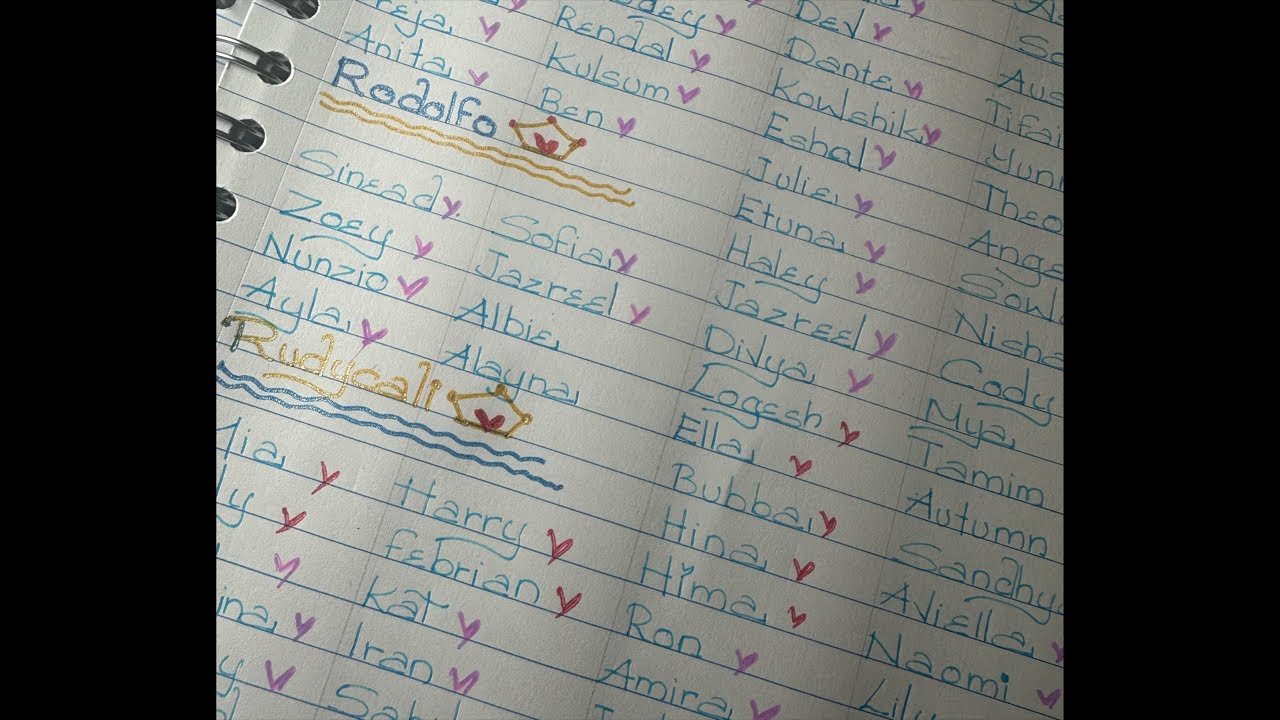 Anita
Rodolfo
Sinead
Zoey
Nunzio
Ayla
Rudycali
Mia
Rendal
Kulsum
Ben
Sofia
Jazreel
Albie
Alayna
Harry
Febrian
Kat
Iran
Dev
Dante
Kowshik
Eshal
Julie
Etuna
Haley
Jazreel
Divya
Logesh
Ella
Bubba
Hina
Hima
Ron
Amira
Theo
Nisha
Cody
Mya
Tamim
Autumn
Sandhya
Aviella
Naomi
Lily